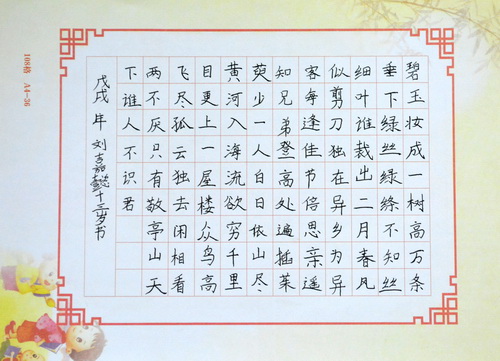 碧玉妆成一树高万条
垂下绿丝绿绦不知丝
细叶谁裁出二月春风
似剪刀独在异乡为异
客每逢佳节倍思亲遥
知兄弟登高处遍插茱
萸少一人白日依山尽
黄河入海流欲穷千里
目更上一屋楼众鸟高
飞尽孤云独去闲相看
两不厌只有敬亭山天
下谁人不识君
戊戌年 刘 懿十三岁书
108格 A4-36